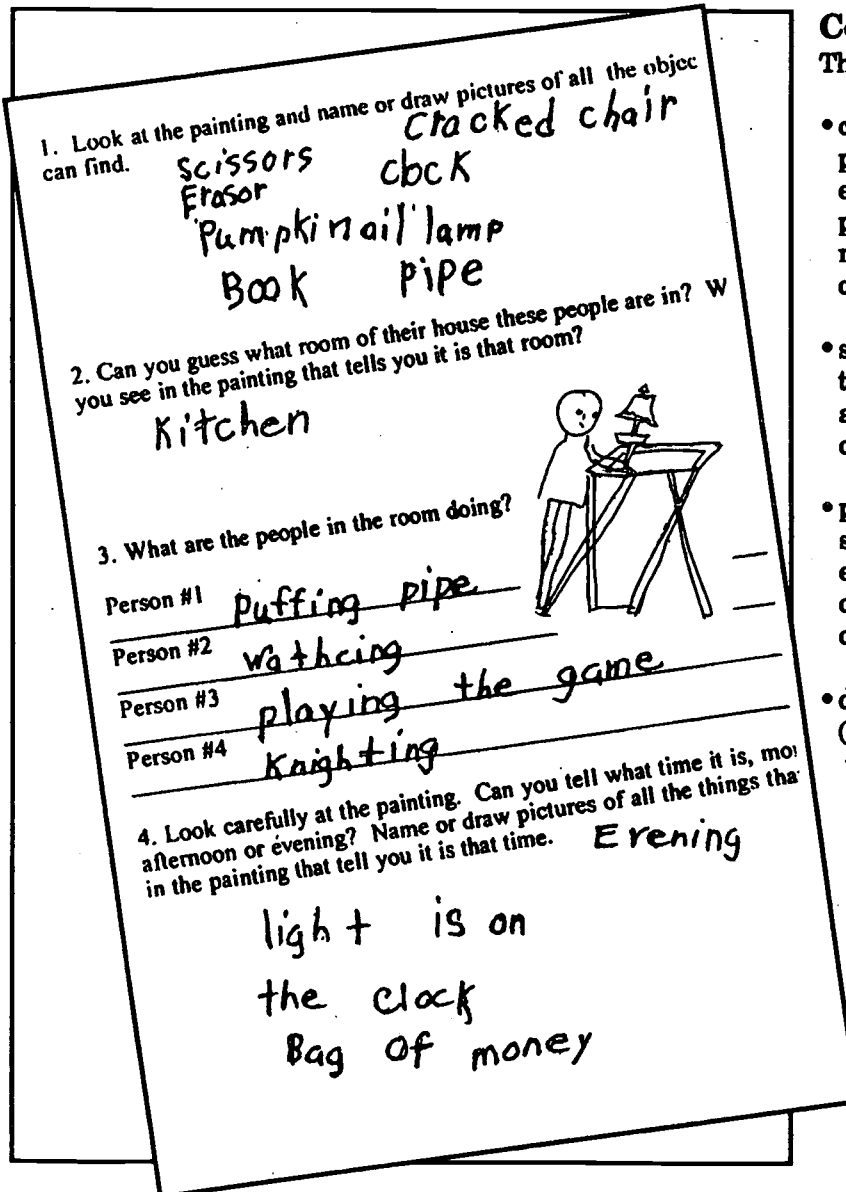 1. Look at the painting and name or draw pictures of all the objec
can find.
Cracked chair
Scissors
Erasor
clock
Pumpki nail lamp
Book pipe
2. Can you guess what room of their house these people are in? W
you see in the painting that tells you it is that room?
Kitchen
3. What are the people in the room doing?
Person #1 Puffing pipe
Person #2 Wathcing
Person #3 playing the game
Person #4 Knighting
4. Look carefully at the painting. Can you tell what time it is, mo
afternoon or evening? Name or draw pictures of all the things tha
in the painting that tell you it is that time. Evening
light is on
the clock
Bag Of money
C
Th